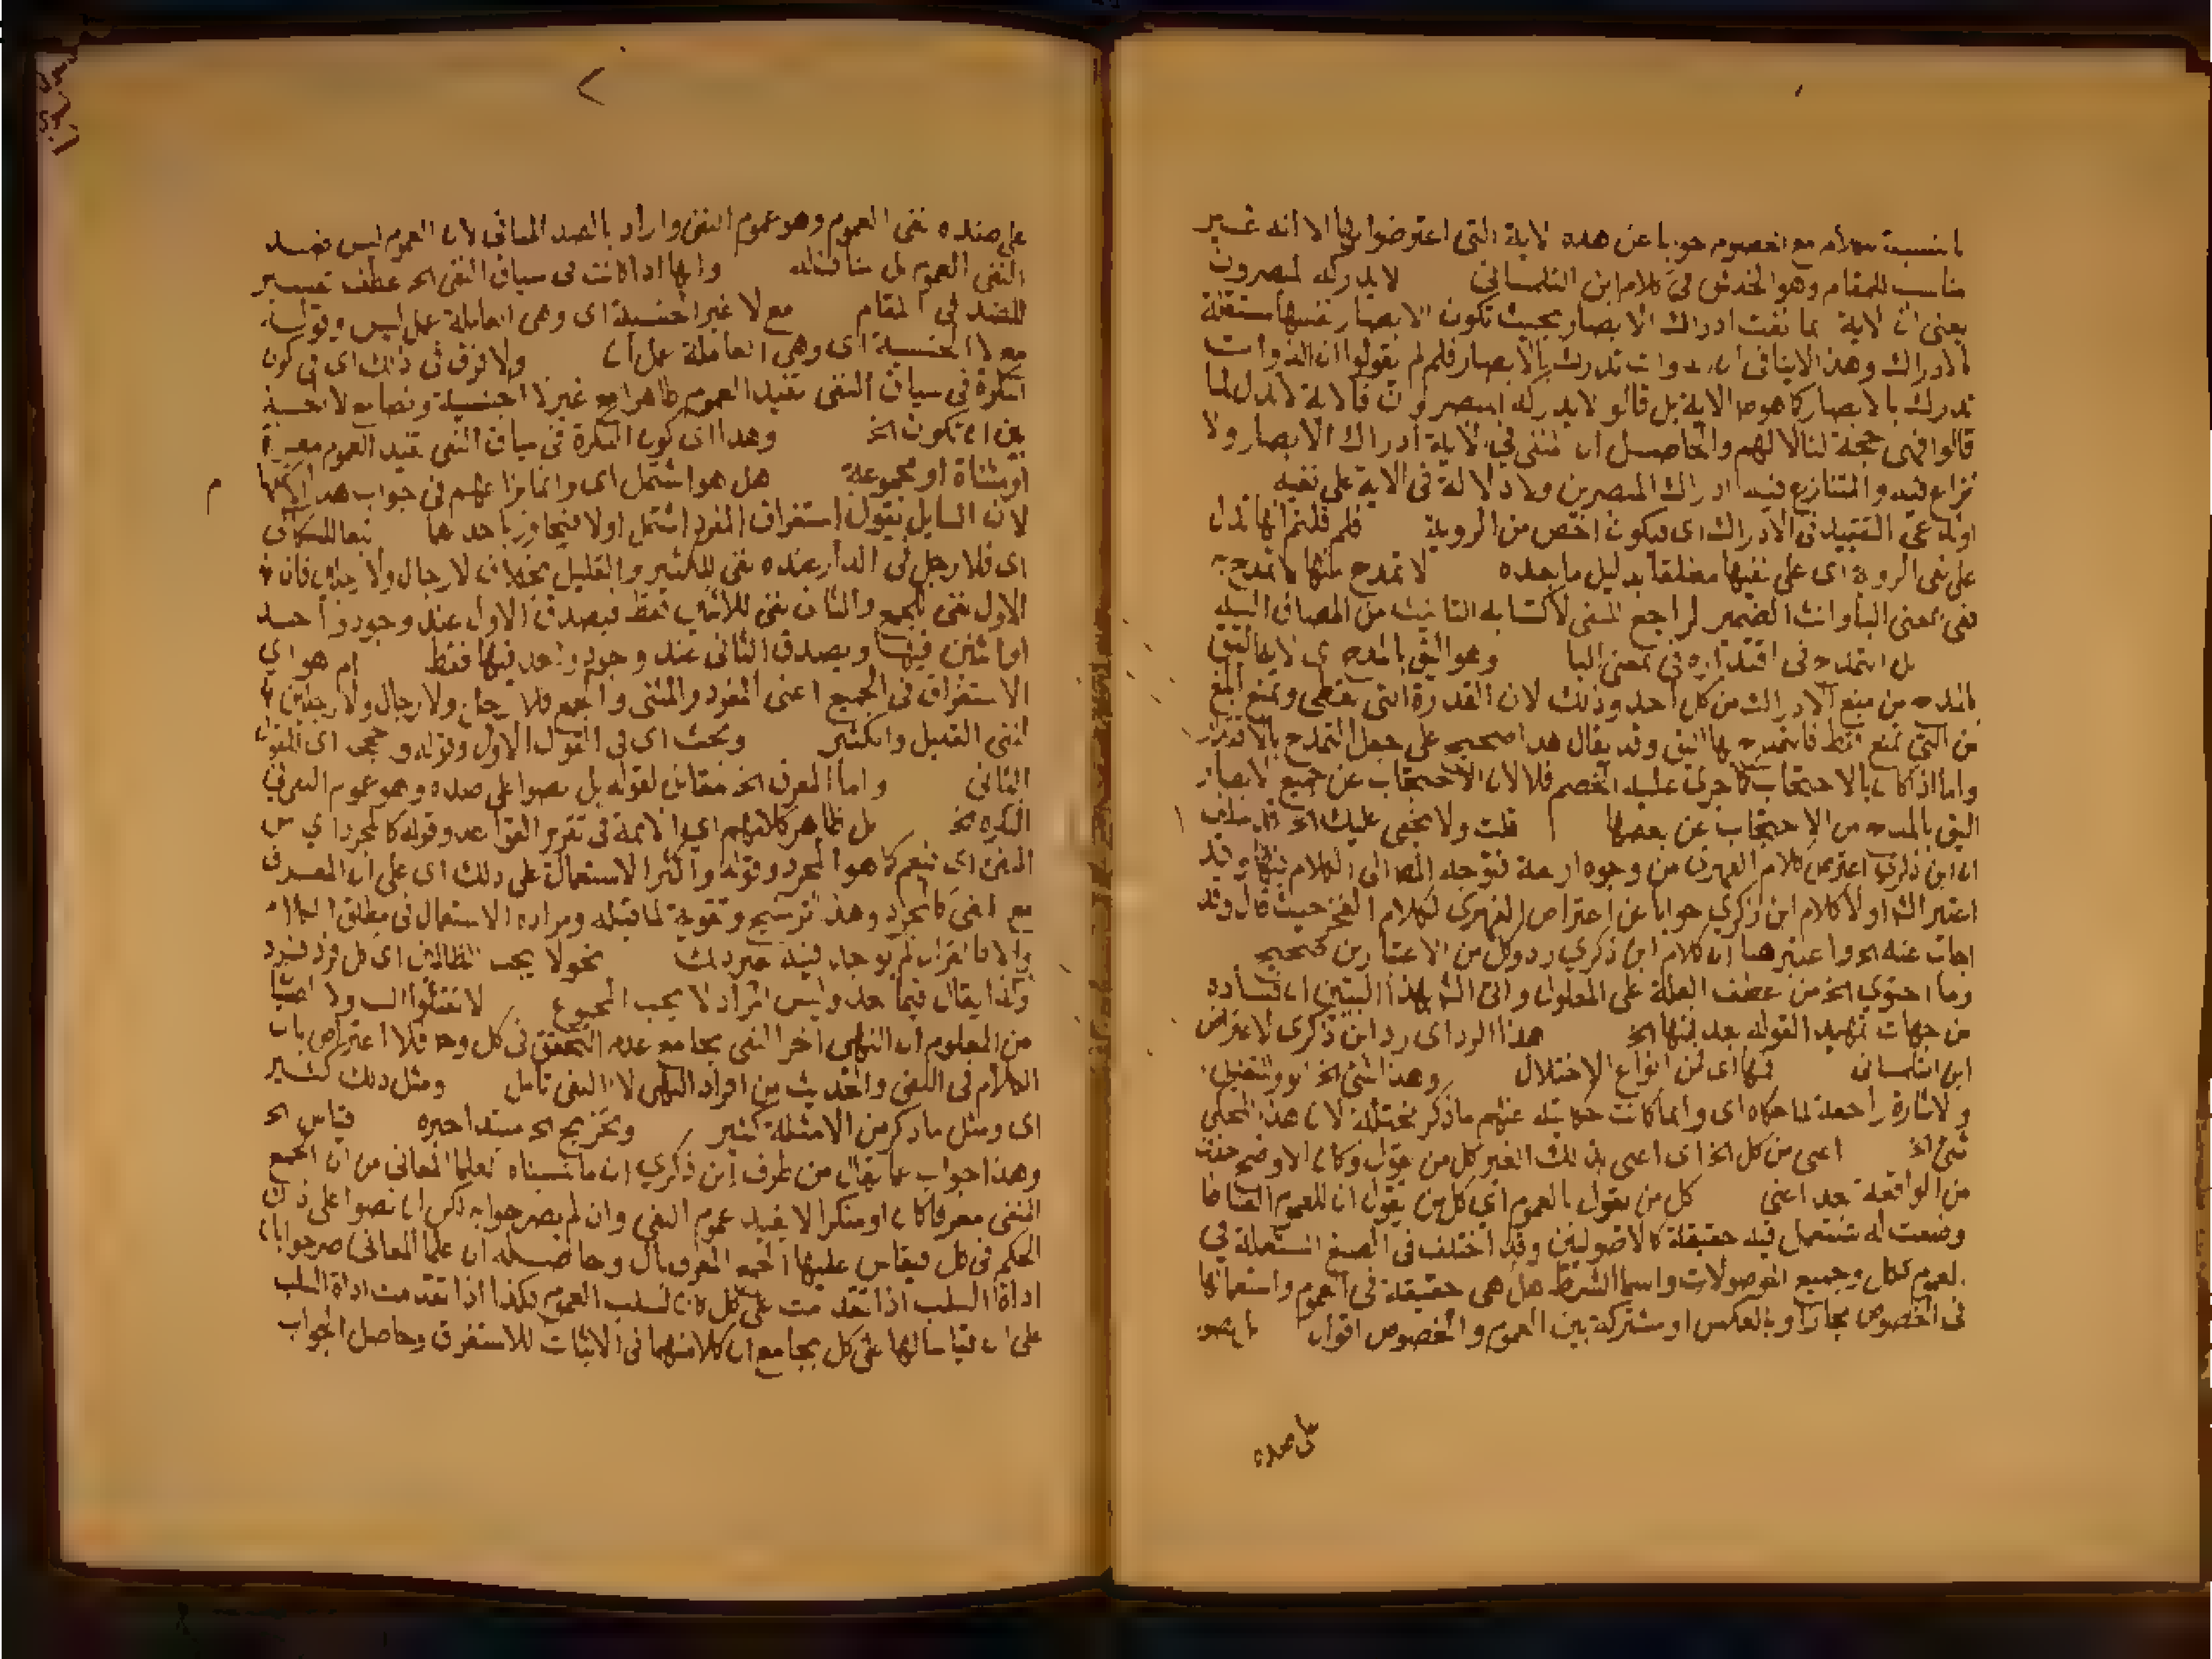 بالنسبة للكلام مع الخصوم جوابا عن هذه الاية التى اعترضوا بها الا انه غير
مناسب للمقام وهو الخدش فى كلام ابن التلمسانى لا يدركه المبصرون
يعنى ان الاية انما نفت ادراك الابصار بحيث تكون الابصار نفسها مستقلة
بالادراك وهذا لا ينافى ان الذوات تدرك بالابصار فلم لم يقولوا ان الذوات
تدرك بالابصار كما هو الاية بل قالوا لا يدركه المبصرون فالاية لا تدل لما
قالوا فهى حجة لنا لا لهم والحاصل ان المنفى فى الاية ادراك الابصار ولا
نزاع فيه والمتنازع فيه ادراك المبصرين ولا دلالة فى الاية على نفيه
اوله على التقييد فى الادراك اى فيكون اخص من الروية فلم قلتم انها تدل
على نفى الروية اى على نفيها مطلقا بدليل ما بعده لا تمدح منها لا تمدح به
ففى بمعنى البا وانث الضمير الراجع للمنفى لاكتسابه التانيث من المضاف اليه
بل التمدح فى اقتداره فى بمعنى البا وهو اليق بالمدح اى لانها اليق
بالمدح من منع الادراك من كل احد وذلك لان القدرة التى تعطى وتمنع ابلغ
من التى تمنع فقط فالتمدح بها اليق وقد يقال هذا صحيح على جعل التمدح بالاقتدار
واما اذا كان بالاحتجاب كما جرى عليه الخصم فلا لان الاحتجاب عن جميع الابصار
اليق بالمدح من الاحتجاب عن بعضها قلت ولا يخفى عليك الخ
ان ابن ذكرى اعترض كلام الفهرى من وجوه اربعة فتوجه المص الى الكلام فيها وقد
اعتبر الش اولا كلام ابن ذكرى جوابا عن اعتراض الفهرى لكلام الفخر حيث قال وقد
اجاب عنه الخ واعتبر هنا ان كلام ابن ذكرى رد وكل من الاعتبارين صحيح
وما احتوى الخ من عطف العلة على المعلول واتى الش بهذا ليبين ان فساده
من جهات تمهيد القوله بعد فيها الخ هذا الرد اى رد ابن ذكرى لاعتراض
ابن التلمسانى فيها اى من انواع الاختلال وهذا شئ الخ
والاشارة راجعة لما حكاه اى وانما كانت حكايته عنهم ما ذكر مختلة لان هذا المحكى
شئ الخ اعنى من كل الخ اى اعنى بذلك الغير كل من يقول وكان الاوضح حذف
من الواقعة بعد اعنى كل من يقول بالعموم اى كل من يقول ان للعموم الفاظا
وضعت له تستعمل فيه حقيقة كالاصوليين وقد اختلف فى الصيغ المستعملة فى
العموم ككل وجميع الموصولات واسما الشرط هل هى حقيقة فى العموم واستعمالها
فى الخصوص مجازا او بالعكس او مشتركة بين العموم والخصوص اقوال بل نصوا
على ضده
على ضده نفى العموم وهو عموم النفى واراد بالضد المنافى لان العموم ليس ضد
النفى العموم بل مناف له وانها اذا كانت فى سياق النفى الخ عطف تفسير
للضد فى المقام مع لا غير الجنسية اى وهى العاملة عمل ليس وقوله
مع لا الجنسية اى وهى العاملة عمل ان ولا فرق فى ذلك اى فى كون
النكرة فى سياق النفى تفيد العموم ظاهرا مع غير لا الجنسية ونصا مع لا الجنسية
بين ان تكون الخ وهذا اى كون النكرة فى سياق النفى تفيد العموم مفردة
او مثناة او مجموعة هل هو اشمل اى وانما نزاعهم فى جواب هذا
لان السايل يقول استغراق المفرد اشمل اولا فيجاوز باحدهما تبعا للسكاكى
اى فلا رجل فى الدار عنده نفى للكثير والقليل بخلاف لا رجال ولا رجلين فان
الاول نفى للجمع والثانى نفى للاثنين فقط فيصدق الاول عند وجود واحد
او اثنين فيها ويصدق الثانى عند وجود واحد فيها فقط ام هو اى
الاستغراق فى الجميع اعنى المفرد والمثنى والجمع فلا رجل ولا رجال ولا رجلين
لنفى القليل والكثير وبحث اى فى القول الاول وقوله ورجح اى القول
الثانى واما المعرف الخ مقابل لقوله بل نصوا على ضده وهو عموم النفى فى
النكرة الخ بل ظاهر كلامهم اى الايمة فى تقرير القواعد وقوله كالمجرد اى من
النفى اى فيعم كما هو المجرد وقوله واكثر الاستعمال على ذلك اى على ان المعرف
مع النفى كالمجرد وهذا ترشيح وتقوية لما قبله ومراده الاستعمال فى مطلق الكلام
والا فالقران لم يوجد فيه غير ذلك نحو لا يحب الظالمين اى كل فرد فرد
وكذا يقال فيما بعد وليس المراد لا يحب المجموع لا تقتلوا النسا ولا الصبيان
من المعلوم ان النهى اخو النفى بجامع عدم التحقق فى كل وح فلا اعتراض بان
الكلام فى النفى والحديث من افراد النهى لا النفى تامل ومثل ذلك كثير
اى ومثل ما ذكر من الامثلة كثير وتخريج الخ مبتدا خبره قياس الخ
وهذا جواب عما يقال من طرف ابن ذكرى ان ما نسبناه لعلما المعانى من ان الجمع
المنفى معرفا كان او منكرا لا يفيد عموم النفى وان لم يصرحوا به لكن لما نصوا على ذلك
الحكم فى كل فيقاس عليها الجمع المعرف بال وحاصله ان علما المعانى صرحوا بان
اداة السلب اذا تقدمت على كل كان لسلب العموم فكذا اذا تقدمت اداة السلب
على ال قياسا لها على كل بجامع ان كلا منهما فى الاثبات للاستغراق وحاصل الجواب